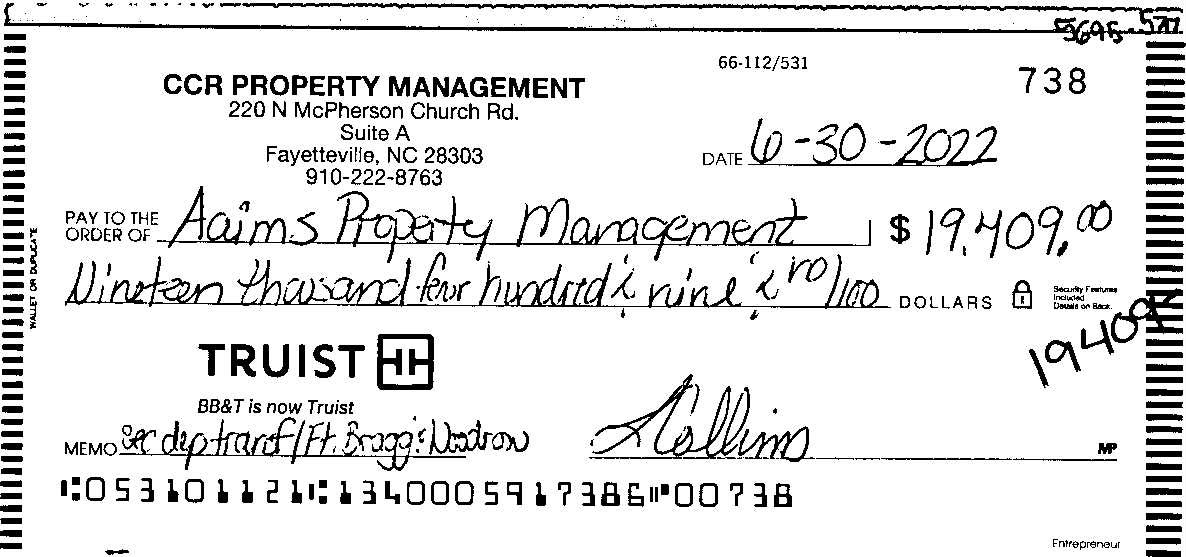 5695.577
66-112/531
738
CCR PROPERTY MANAGEMENT
220 N McPherson Church Rd.
Suite A
Fayetteville, NC 28303
910-222-8763
DATE 6-30-2022
PAY TO THE ORDER OF Acims Property Management $ 19,409.00
Nineteen thousand four hundred & nine & no/100 DOLLARS
Security Features Included Details on Back
WALLET OR DUPLICATE
19409
TRUIST
BB&T is now Truist
MEMO Sec dep transf/Ft. Bragg & Woodrow
Collins
MP
⑆053101121⑆1340005917386⑈00738
Entrepreneur